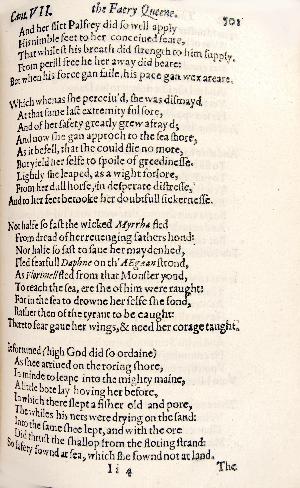 Cant. VII. the Faery Queene. 501
And her flit Palfrey did so well apply
His nimble feet to her conceiued feare,
That whilest his breath did strength to him supply,
From perill free he her away did beare:
But when his force gan faile, his pace gan wex areare.
Which whenas she perceiu'd, she was dismayd
At that same last extremity ful sore,
And of her safety greatly grew afrayd;
And now she gan approch to the sea shore,
As it befell, that she could flie no more,
But yield her selfe to spoile of greedinesse.
Lightly she leaped, as a wight forlore,
From her dull horse, in desperate distresse,
And to her feet betooke her doubtfull sickernesse.
Not halfe so fast the wicked Myrrha fled
From dread of her reuenging fathers hond:
Nor halfe so fast to saue her maydenhed,
Fled fearfull Daphne on th' Ægæan strond,
As Florimell fled from that Monster yond,
To reach the sea, ere she of him were raught:
For in the sea to drowne her selfe she fond,
Rather then of the tyrant to be caught:
Thereto fear gaue her wings, & need her corage taught.
It fortuned (high God did so ordaine)
As shee arriued on the roring shore,
In minde to leape into the mighty maine,
A little bote lay hoving her before,
In which there slept a fisher old and pore,
The whiles his nets were drying on the sand:
Into the same shee lept, and with the ore
Did thrust the shallop from the floting strand:
So safety fownd at sea, which she fownd not at land.
I i 4 The